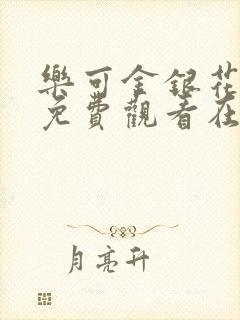 樂可金銀花
免費觀看在
月亮升